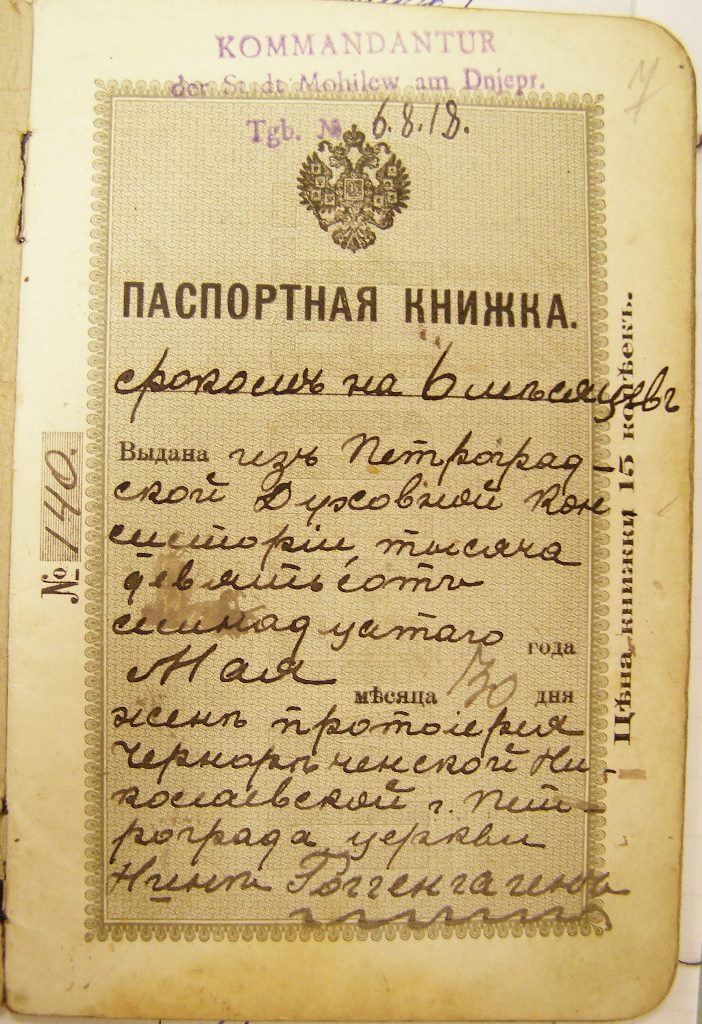 KOMMANDANTUR
der Stadt Mohilew am Dnjepr.
Tgb. № 6.8.18.
7
ПАСПОРТНАЯ КНИЖКА.
срокомъ на 6 мѣсяцевъ
Выдана изъ Петроград-
ской Духовной Кон
систоріи, тысяча
девятьсотъ
семнадцатаго года
Мая мѣсяца 30 дня
женѣ протоіерея
Чернорѣченской Ни-
колаевской г. Пет-
рограда церкви
Нинѣ Роггенгагенъ
№ 140.
Цѣна книжки 15 копѣекъ.